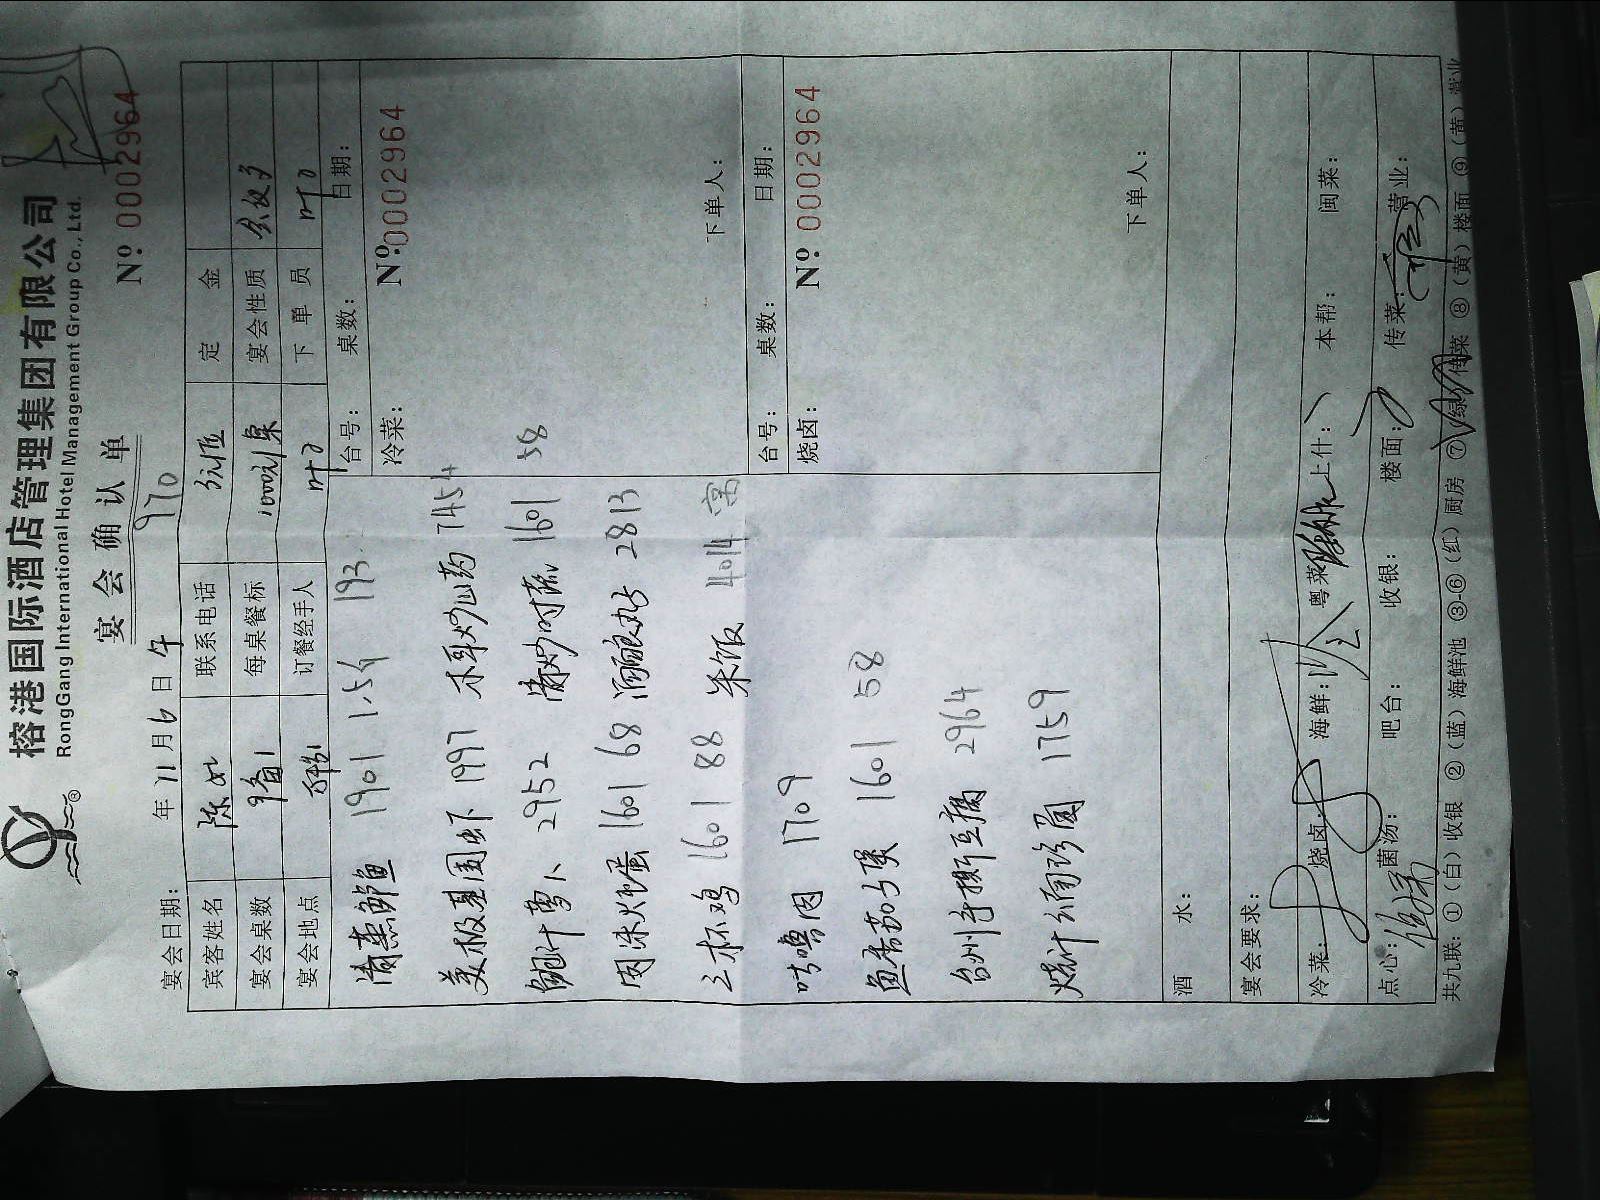 榕港国际酒店管理集团有限公司
RongGang International Hotel Management Group Co., Ltd.
®
宴会确认单
宴会日期： 年 11 月 6 日 午 970 Nº 0002964
宾客姓名 陈 联系电话 定金
宴会桌数 每桌餐标 宴会性质
宴会地点 订餐经手人 下单员
台号： 桌数： 日期：
清蒸鲈鱼 1901 193
冷菜： Nº 0002964
美极基围虾 1997 木耳炒山药 7454
鲍汁萝卜 2952 清炒时蔬 1601 58
肉沫火蛋 1601 68 酒酿丸子 2813
三杯鸡 1601 88 米饭 4014
下单人：
台号： 桌数： 日期：
咕噜肉 1709
烧卤： Nº 0002964
鱼香茄子煲 1601 58
台州手撕豆腐 2964
烧汁 1759
下单人：
酒水：
宴会要求：
冷菜： 烧卤： 海鲜： 粤菜： 上什： 本帮： 闽菜：
点心： 菌汤： 吧台： 收银： 楼面： 传菜： 营业：
共九联：①（白）收银 ②（蓝）海鲜池 ③-⑥（红）厨房 ⑦（绿）传菜 ⑧（黄）楼面 ⑨（黄）营业